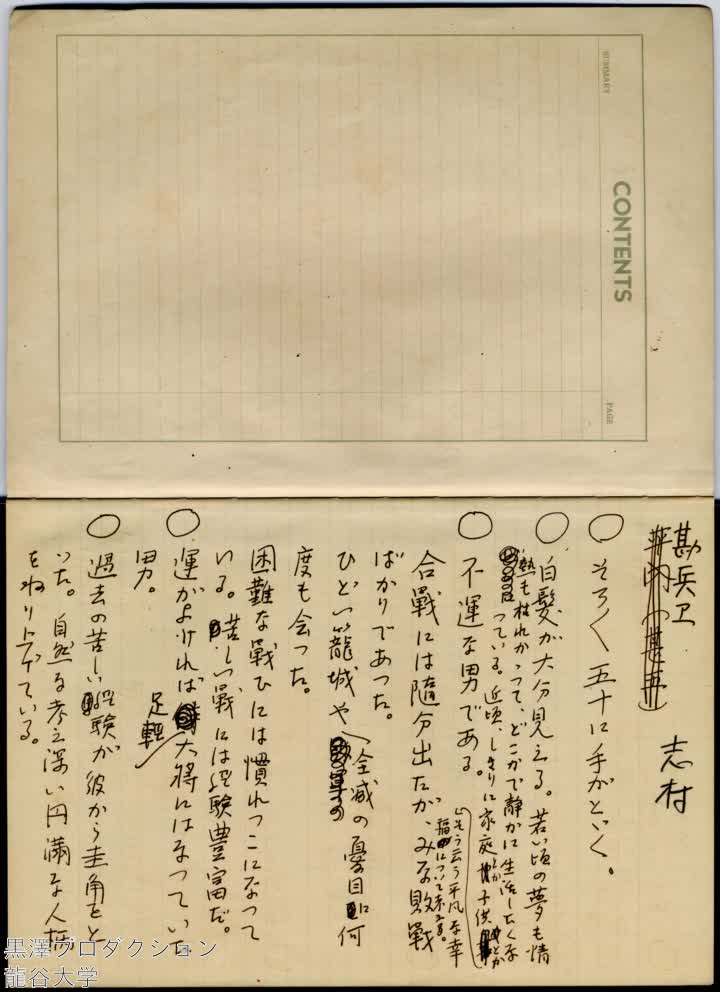 SUMMARY
CONTENTS
PAGE
勘兵ヱ
志村
○そろ〱五十に手がとゞく。
○白髪が大分見える。若い頃の夢も情
熱も枯れかゝって、どこかで静かに生活したくな
っている。近頃、しきりに家庭とか子供とか
いそう云う平凡な幸
福について考える。
○不運な男である。
合戰には随分出たが、みな敗戰
ばかりであつた。
ひどい籠城や全滅の憂目に何
度も会つた。
困難な戰ひには慣れっこになって
いる。苦しい戰には経験豊富だ。
○運がよければ大将にはなつていた
男。
足軽
○過去の苦しい経験が彼から圭角をと
った。自然な考え深い円満な人柄
をねり上げている。
黒澤プロダクション
龍谷大学